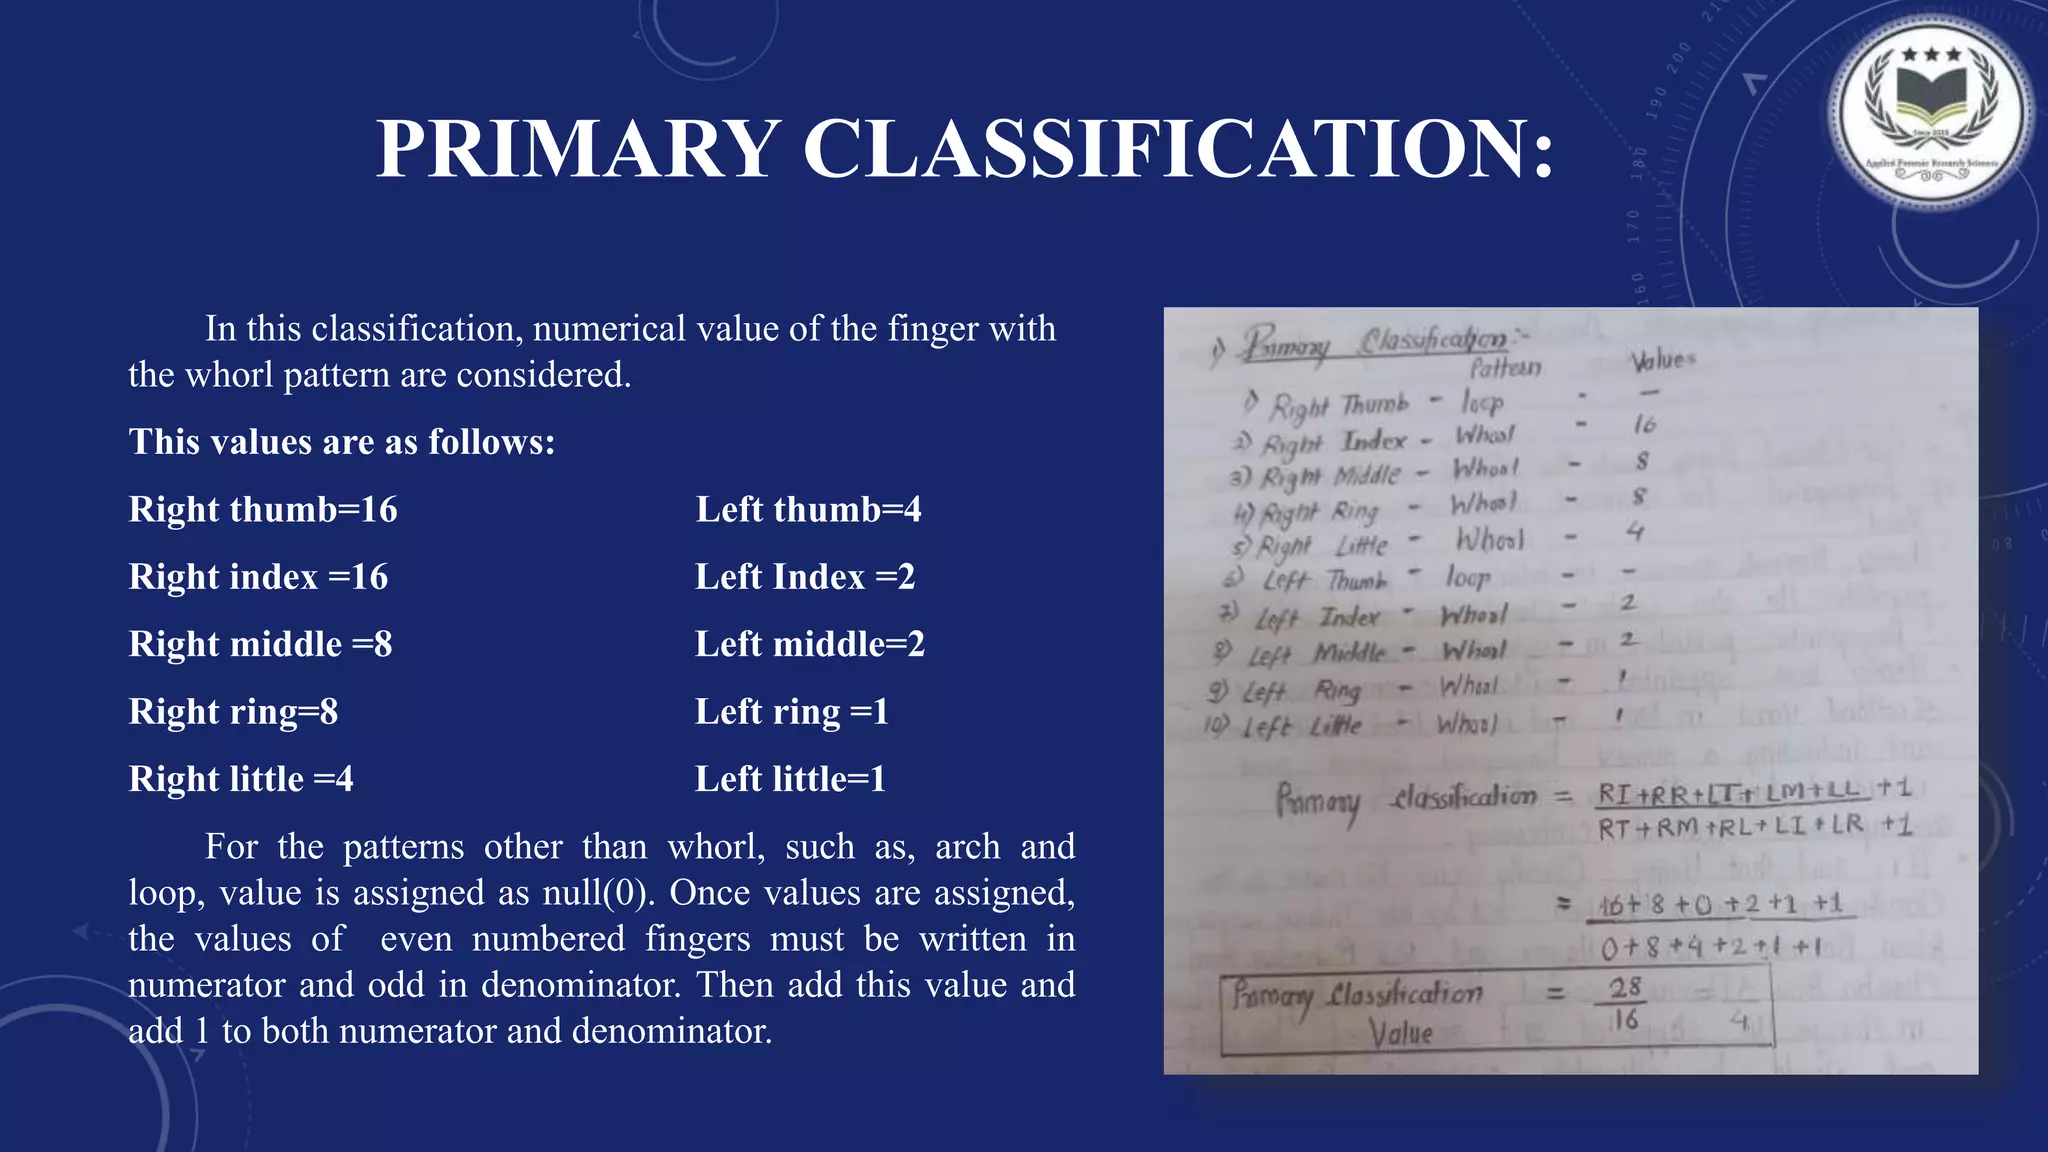 PRIMARY CLASSIFICATION:
Since 2020
Applied Forensic Research Sciences
In this classification, numerical value of the finger with
the whorl pattern are considered.
This values are as follows:
Right thumb=16 Left thumb=4
Right index =16 Left Index =2
Right middle =8 Left middle=2
Right ring=8 Left ring =1
Right little =4 Left little=1
For the patterns other than whorl, such as, arch and
loop, value is assigned as null(0). Once values are assigned,
the values of even numbered fingers must be written in
numerator and odd in denominator. Then add this value and
add 1 to both numerator and denominator.
1) Primary Classification:-
Pattern Values
1) Right Thumb - loop - -
2) Right Index - Whorl - 16
3) Right Middle - Whorl - 8
4) Right Ring - Whorl - 8
5) Right Little - Whorl - 4
6) Left Thumb - loop - -
7) Left Index - Whorl - 2
8) Left Middle - Whorl - 2
9) Left Ring - Whorl - 1
10) Left Little - Whorl - 1
Primary classification = RI+RR+LT+LM+LL+1
RT+RM+RL+LI+LR+1
= 16+8+0+2+1+1
0+8+4+2+1+1
Primary Classification = 28
Value 16 4
160 170 180 190 200 210
80